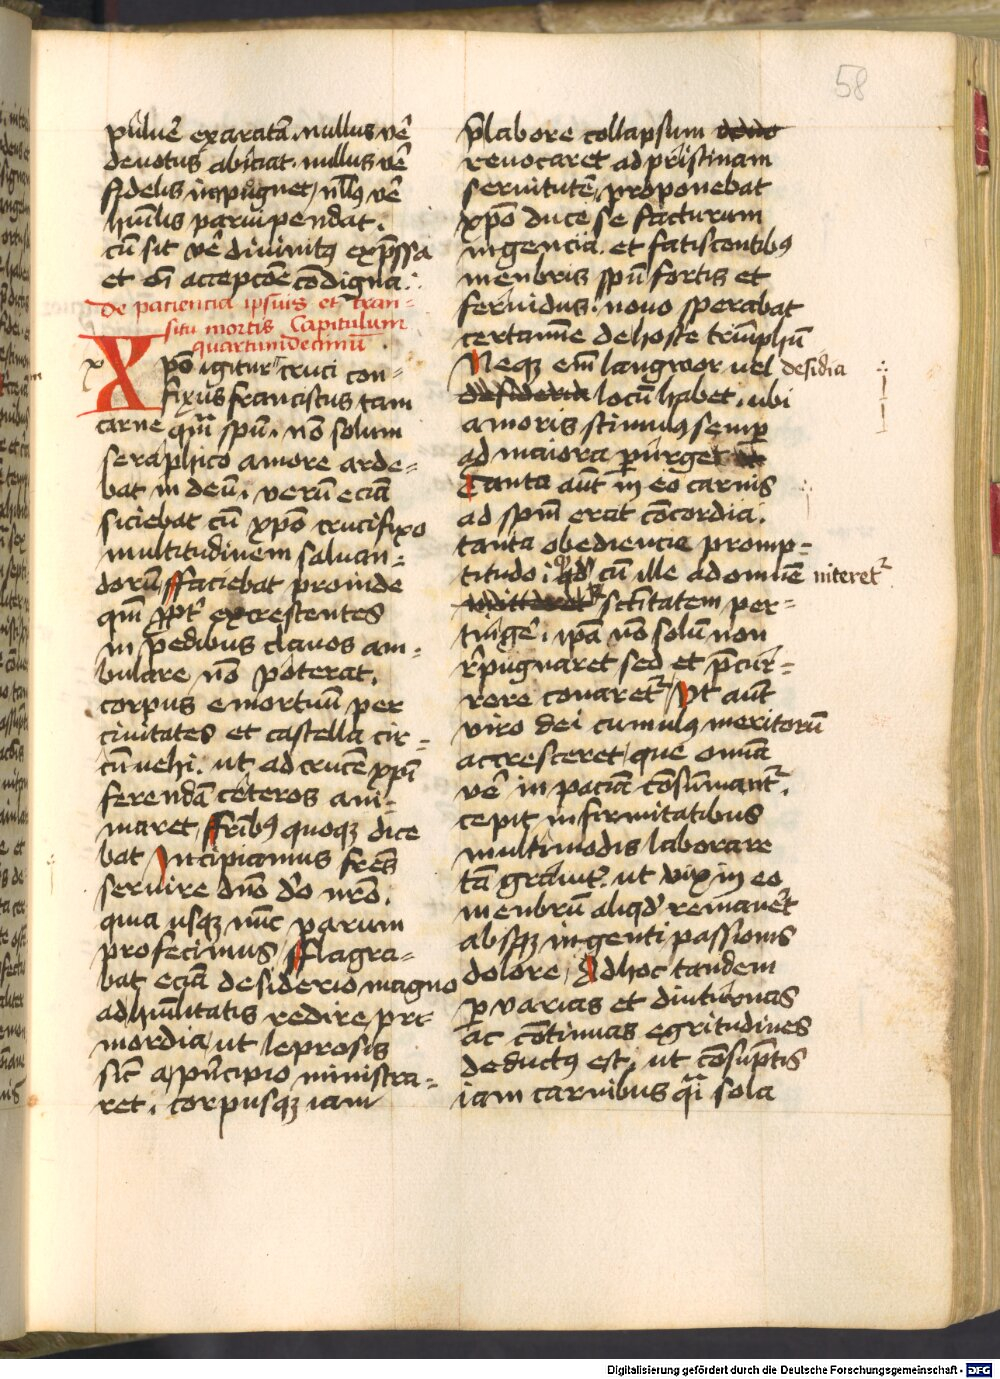 58
pulueͤ exaratā. nullus v̄e
deuotus abiciat. nullus v̄e
fidelis inpugnet / nllus v̄e
huīlis paruipendat.
cū sit v̄e diuinitꝰ exp̄ssa
et oī accepcōe cōdigna.
De paciencia ipsius et tran-
situ mortis Capitulum
quartumdecimū
x
Xpō igitur cruci con-
fixus franciscus tam
carne qm̄ spū. nō solum
seraphico amore arde=
bat in deū. verū eciā
siciebat cū xpō crucifixo
multitudinem saluan=
dorū ffaciebat proinde
qm̄ ꝓpt̄ excrescentes
in pedibus clauos am=
bulare nō poterat.
corpus emortuū per
ciuitates et castella cir=
cūuehi. ut ad crucē xp̄i
ferendā ceteros ani-
maret ffrībꝰ quoqꝫ dice
bat Incipiamus fr̄es
seruire dn̄o d̄o nr̄o.
quia usqꝫ nūc parum
profecimus / fflagra=
bat eciā desiderio magno
ad huīlitatis redire pri-
mordia / ut leprosis
sic̄ a p̄ncipio ministra=
ret. corpusqꝫ iam
p̄ labore collapsum
reuocaret ad pristinam
seruitutē, proponebat
xpō duce se facturum
ingencia. et fatiscentibꝰ
menbris spū fortis et
feruidus. nouo sperabat
certamīe de hoste triūphū
Neqꝫ em̄ langwor uel desidia
locū habet. ubi
amoris stimulꝰ semꝑ
ad maiora ꝑurget
Tanta aūt in eo carnis
ad spm̄ erat cōcordia.
tanta obediencie promp=
titudo. qd̄ cū ille ad omnē niteret᷑
sc̄titatem per=
tingē. ipā nō solū non
r̄pugnaret sed et p̄cur=
rere conaret᷑ / Vt aūt
viro dei cumulꝰ meritorū
accresceret / que om̄ia
v̄e in paciā cōsūmant᷑.
cepit infirmitatibus
multimodis laborare
tā grauit᷑. ut vix in eo
menbrū aliqd̄ remanēt
absqꝫ ingenti passionis
dolore, Adhoc tandem
ꝑ varias et diuturnas
ac cōtinuas egritudines
deductꝰ est, ut cōsūptis
iam carnibus q̄i sola
Digitalisierung gefördert durch die Deutsche Forschungsgemeinschaft - DFG